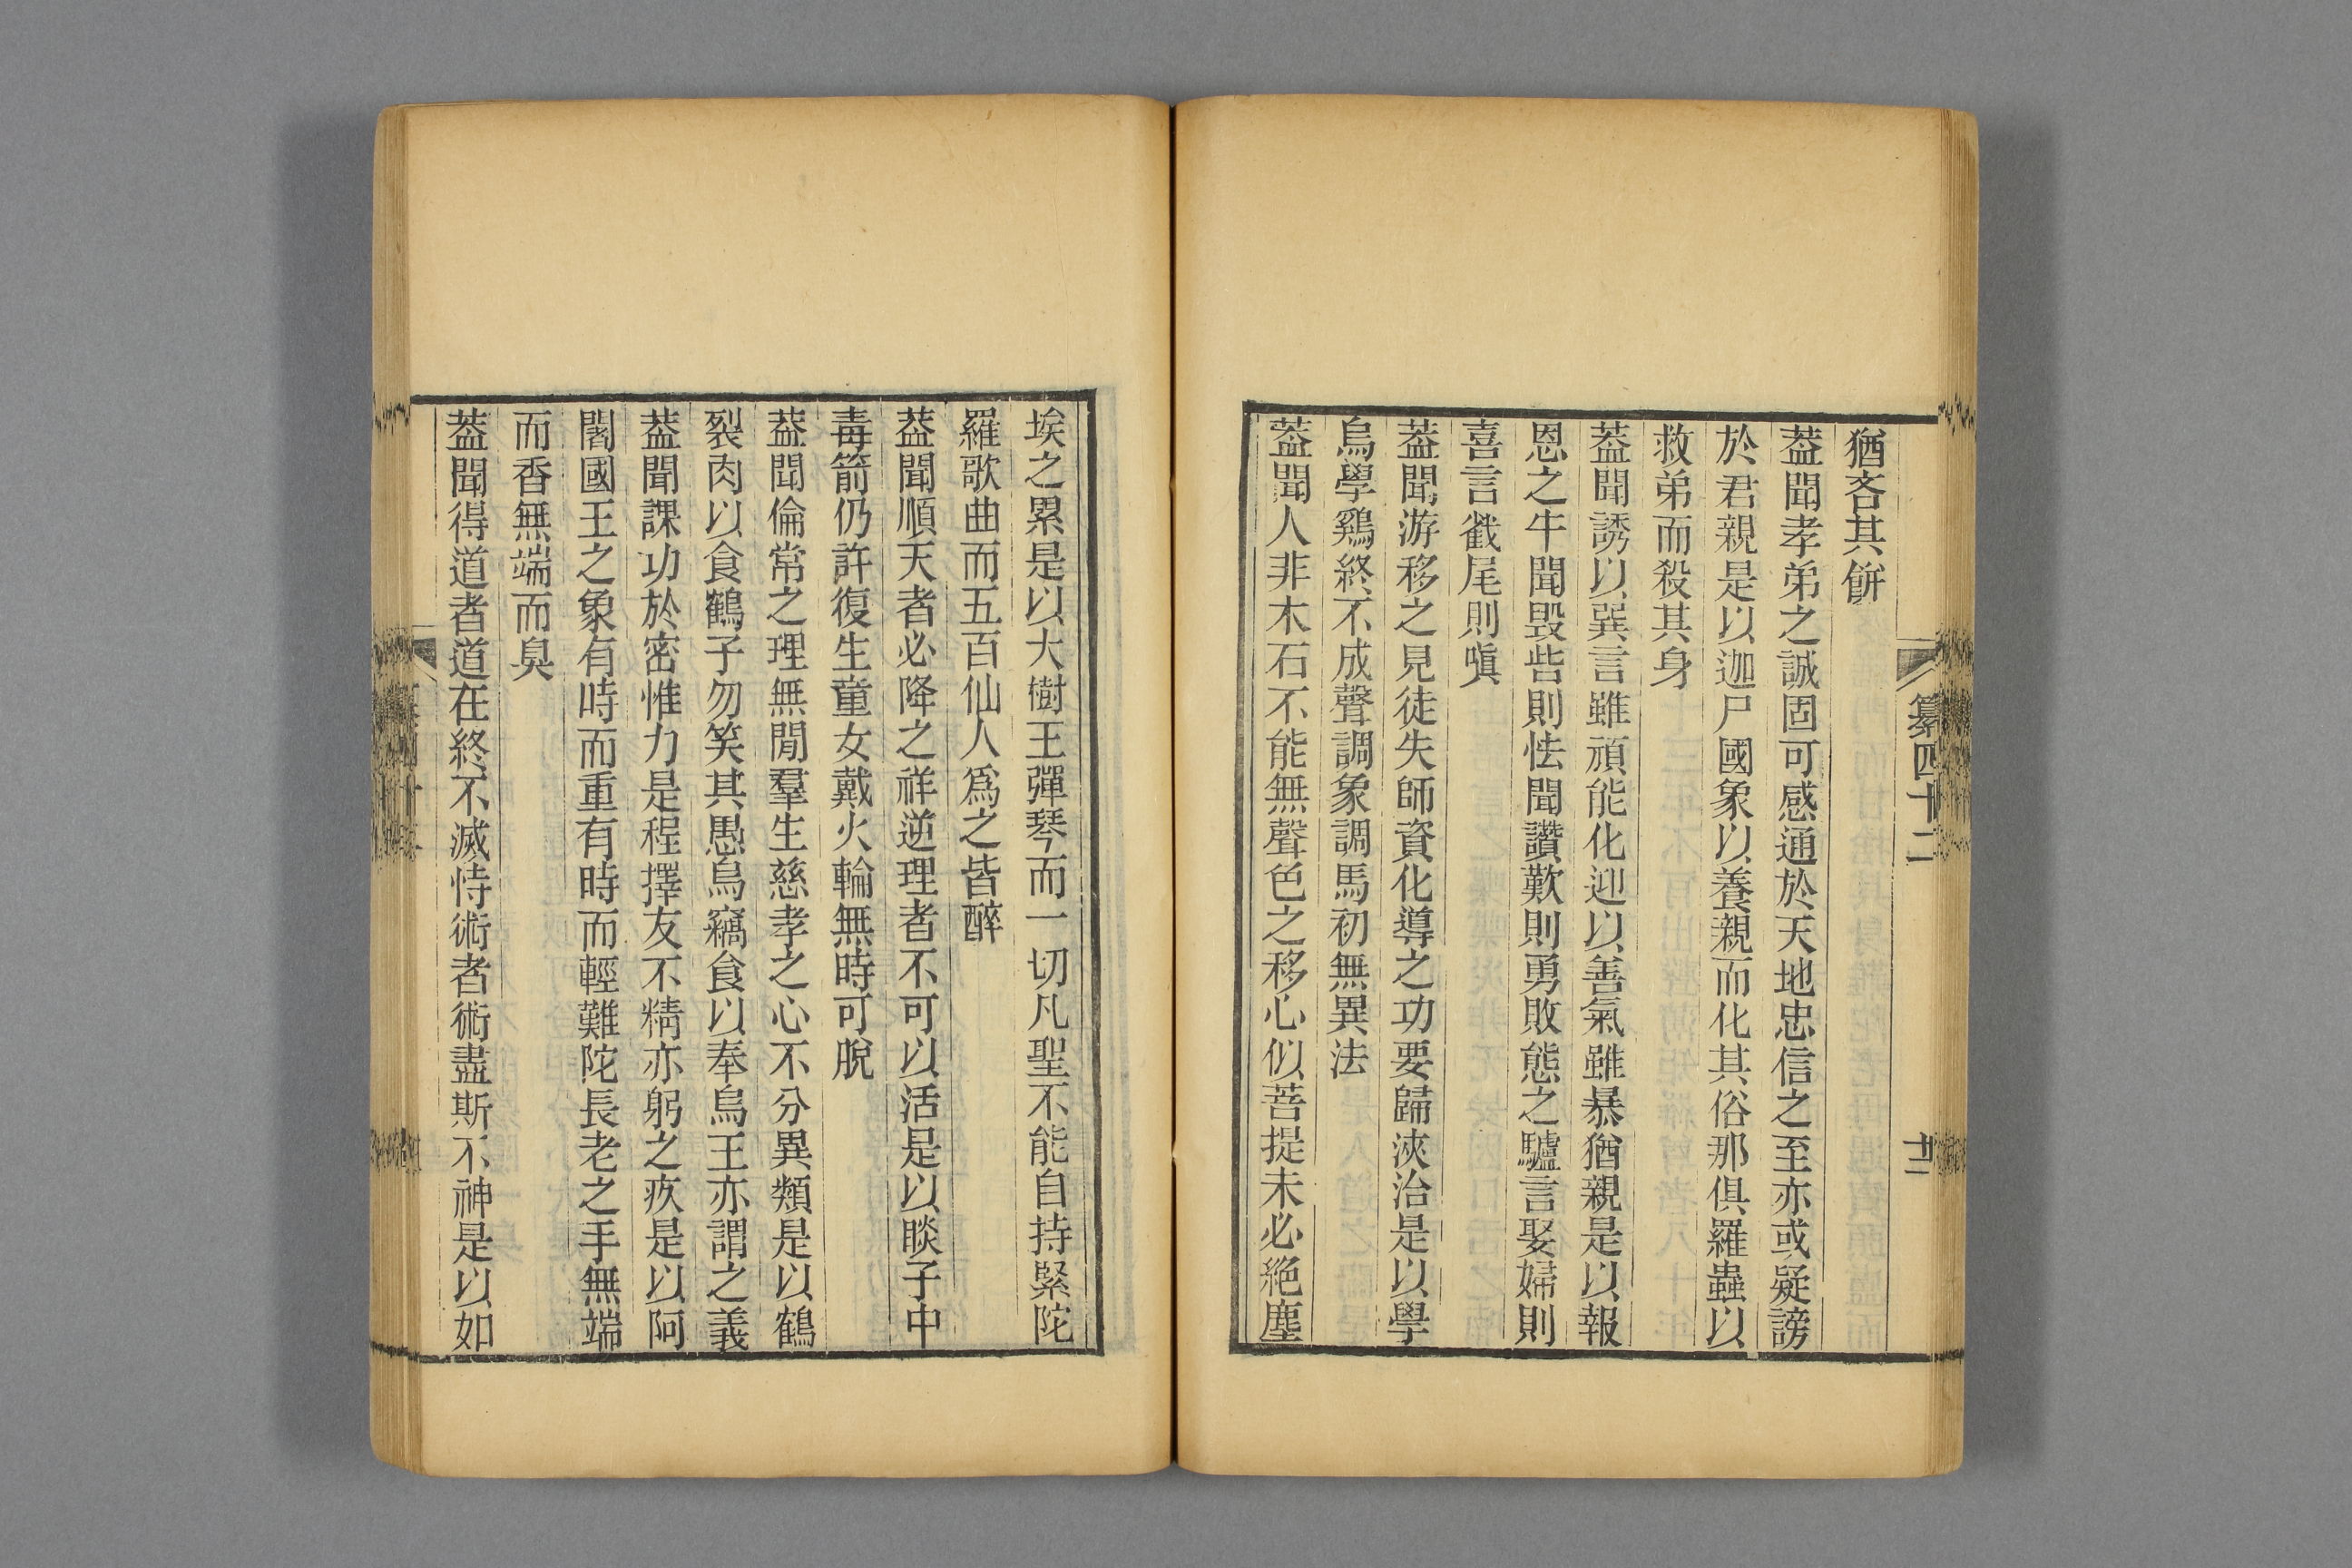 纂四十二
廿一
猶吝其餠
葢聞孝弟之誠固可感通於天地忠信之至亦或疑謗
於君親是以迦尸國象以養親而化其俗那俱羅蟲以
救弟而殺其身
葢聞誘以巽言雖頑能化迎以善氣雖暴猶親是以報
恩之牛聞毀呰則怯聞讚歎則勇敗態之驢言娶婦則
喜言截尾則嗔
葢聞游移之見徒失師資化導之功要歸浹洽是以學
烏學鷄終不成聲調象調馬初無異法
葢聞人非木石不能無聲色之移心似菩提未必絶塵
埃之累是以大樹王彈琴而一切凡聖不能自持緊陀
羅歌曲而五百仙人爲之皆醉
葢聞順天者必降之祥逆理者不可以活是以睒子中
毒箭仍許復生童女戴火輪無時可脫
葢聞倫常之理無閒羣生慈孝之心不分異類是以鶴
裂肉以食鶴子勿笑其愚烏竊食以奉烏王亦謂之義
葢聞課功於密惟力是程擇友不精亦躬之疚是以阿
闍國王之象有時而重有時而輕難陀長老之手無端
而香無端而臭
葢聞得道者道在終不滅恃術者術盡斯不神是以如